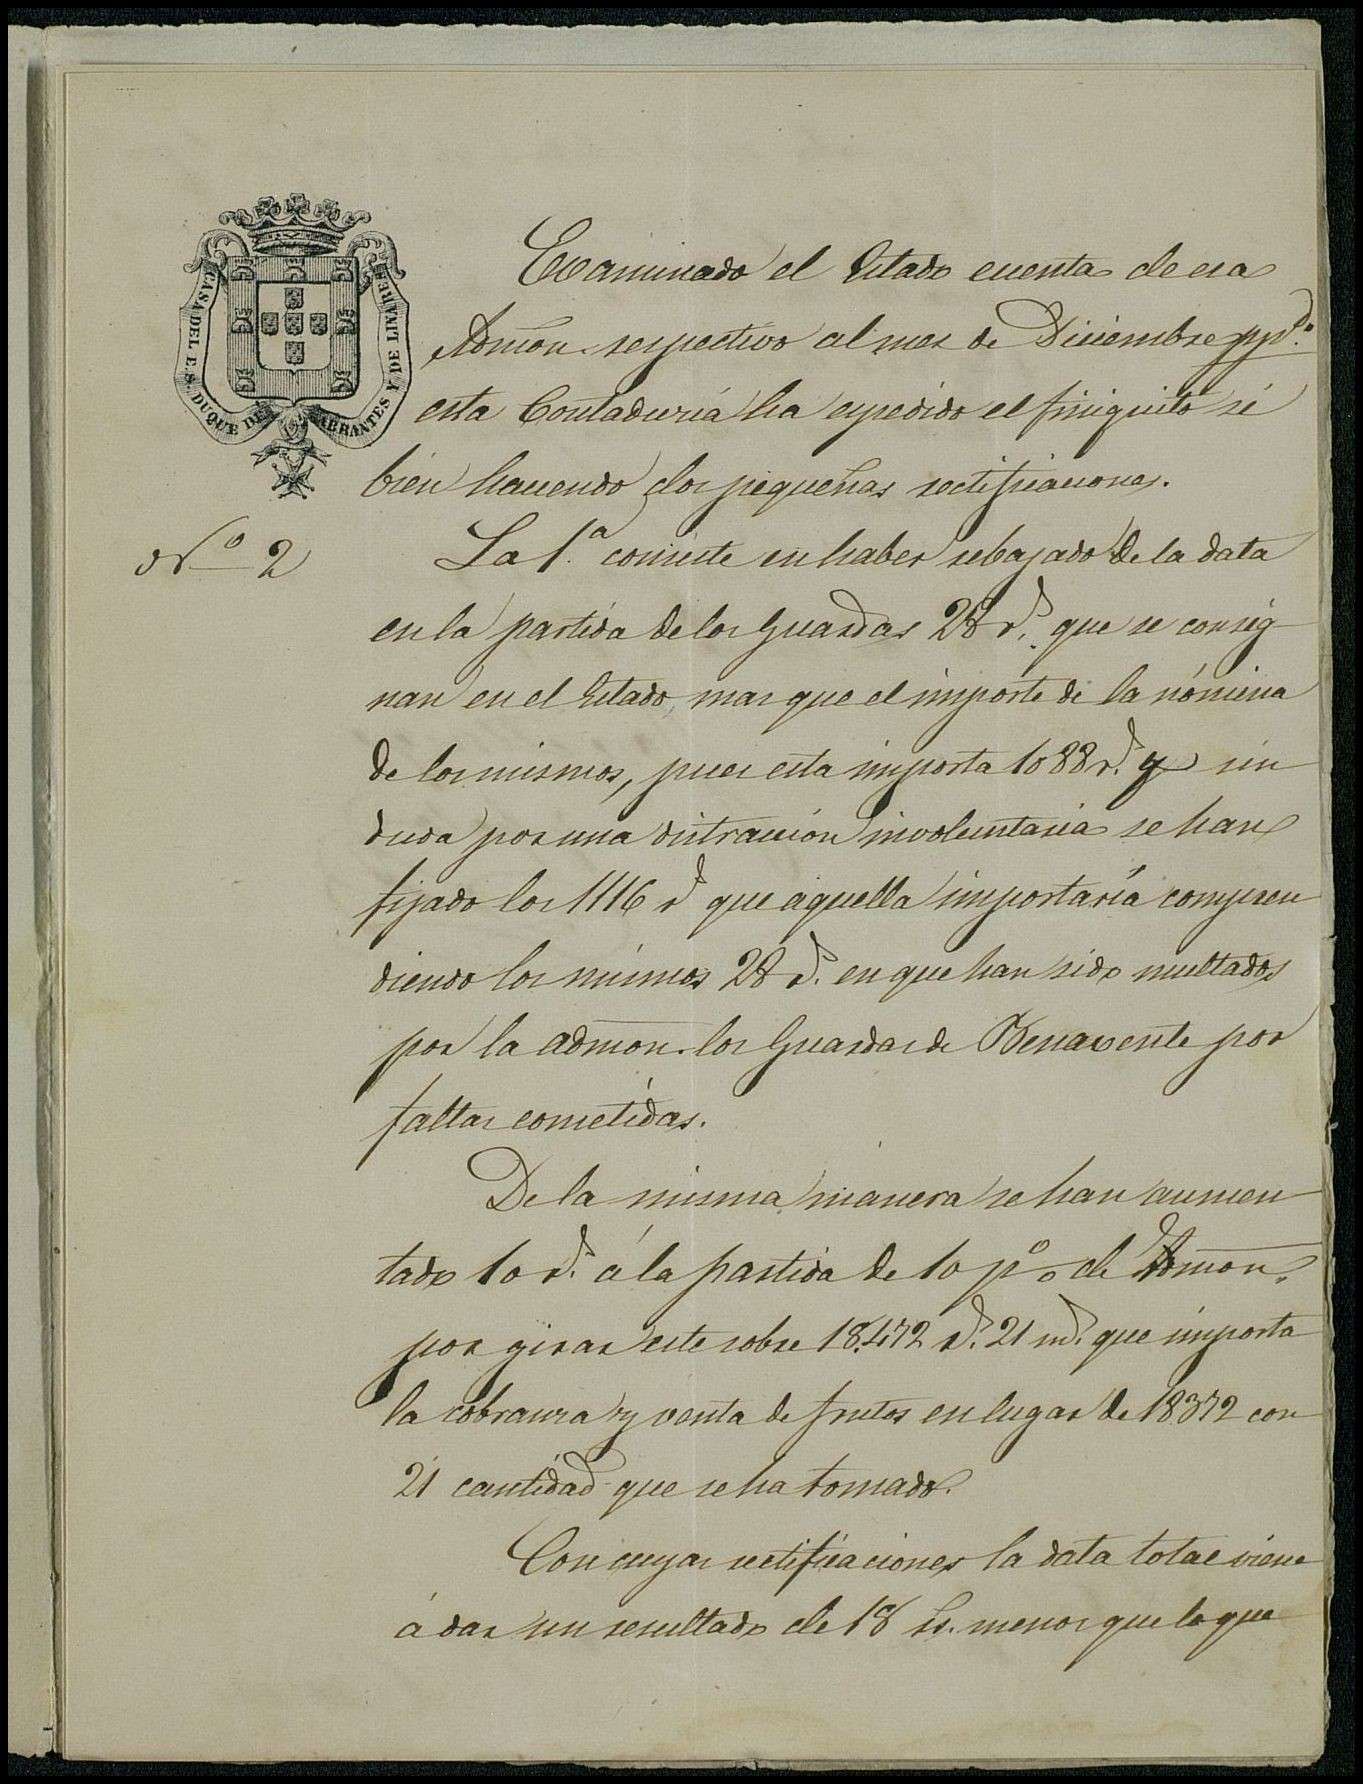 CASA DEL E. S. DUQUE DE ABRANTES Y DE LINARES
Examinado el Estado cuenta de esa
Admon. respectivo al mes de Diciembre ppdo.
esta Contaduría ha expedido el finiquito si
bién haciendo dos pequeñas rectificaciones.
Nº 2
La 1.ª consiste en haber rebajado de la data
en la partida de los Guardas 28 rs. que se consig
nan en el Estado, mas que el importe de la nómina
de los mismos, pues esta importa 1088 rs. y sin
duda por una distracción involuntaria se han
fijado los 1116 rs que aquella importaría compren
diendo los mismos 28 rs. en que han sido multados
por la admon. los Guardas de Benavente por
faltas cometidas.
De la misma manera se han aumen
tado 10 rs. á la partida de 10 pº. de Admon.
por girar este sobre 18.472 rs. 21 ms. que importa
la cobranza y venta de frutos en lugar de 18372 con
21 cantidad que se ha tomado.
Con cuyas rectificaciones la data total viene
á dar un resultado de 18 rs. menos que la que